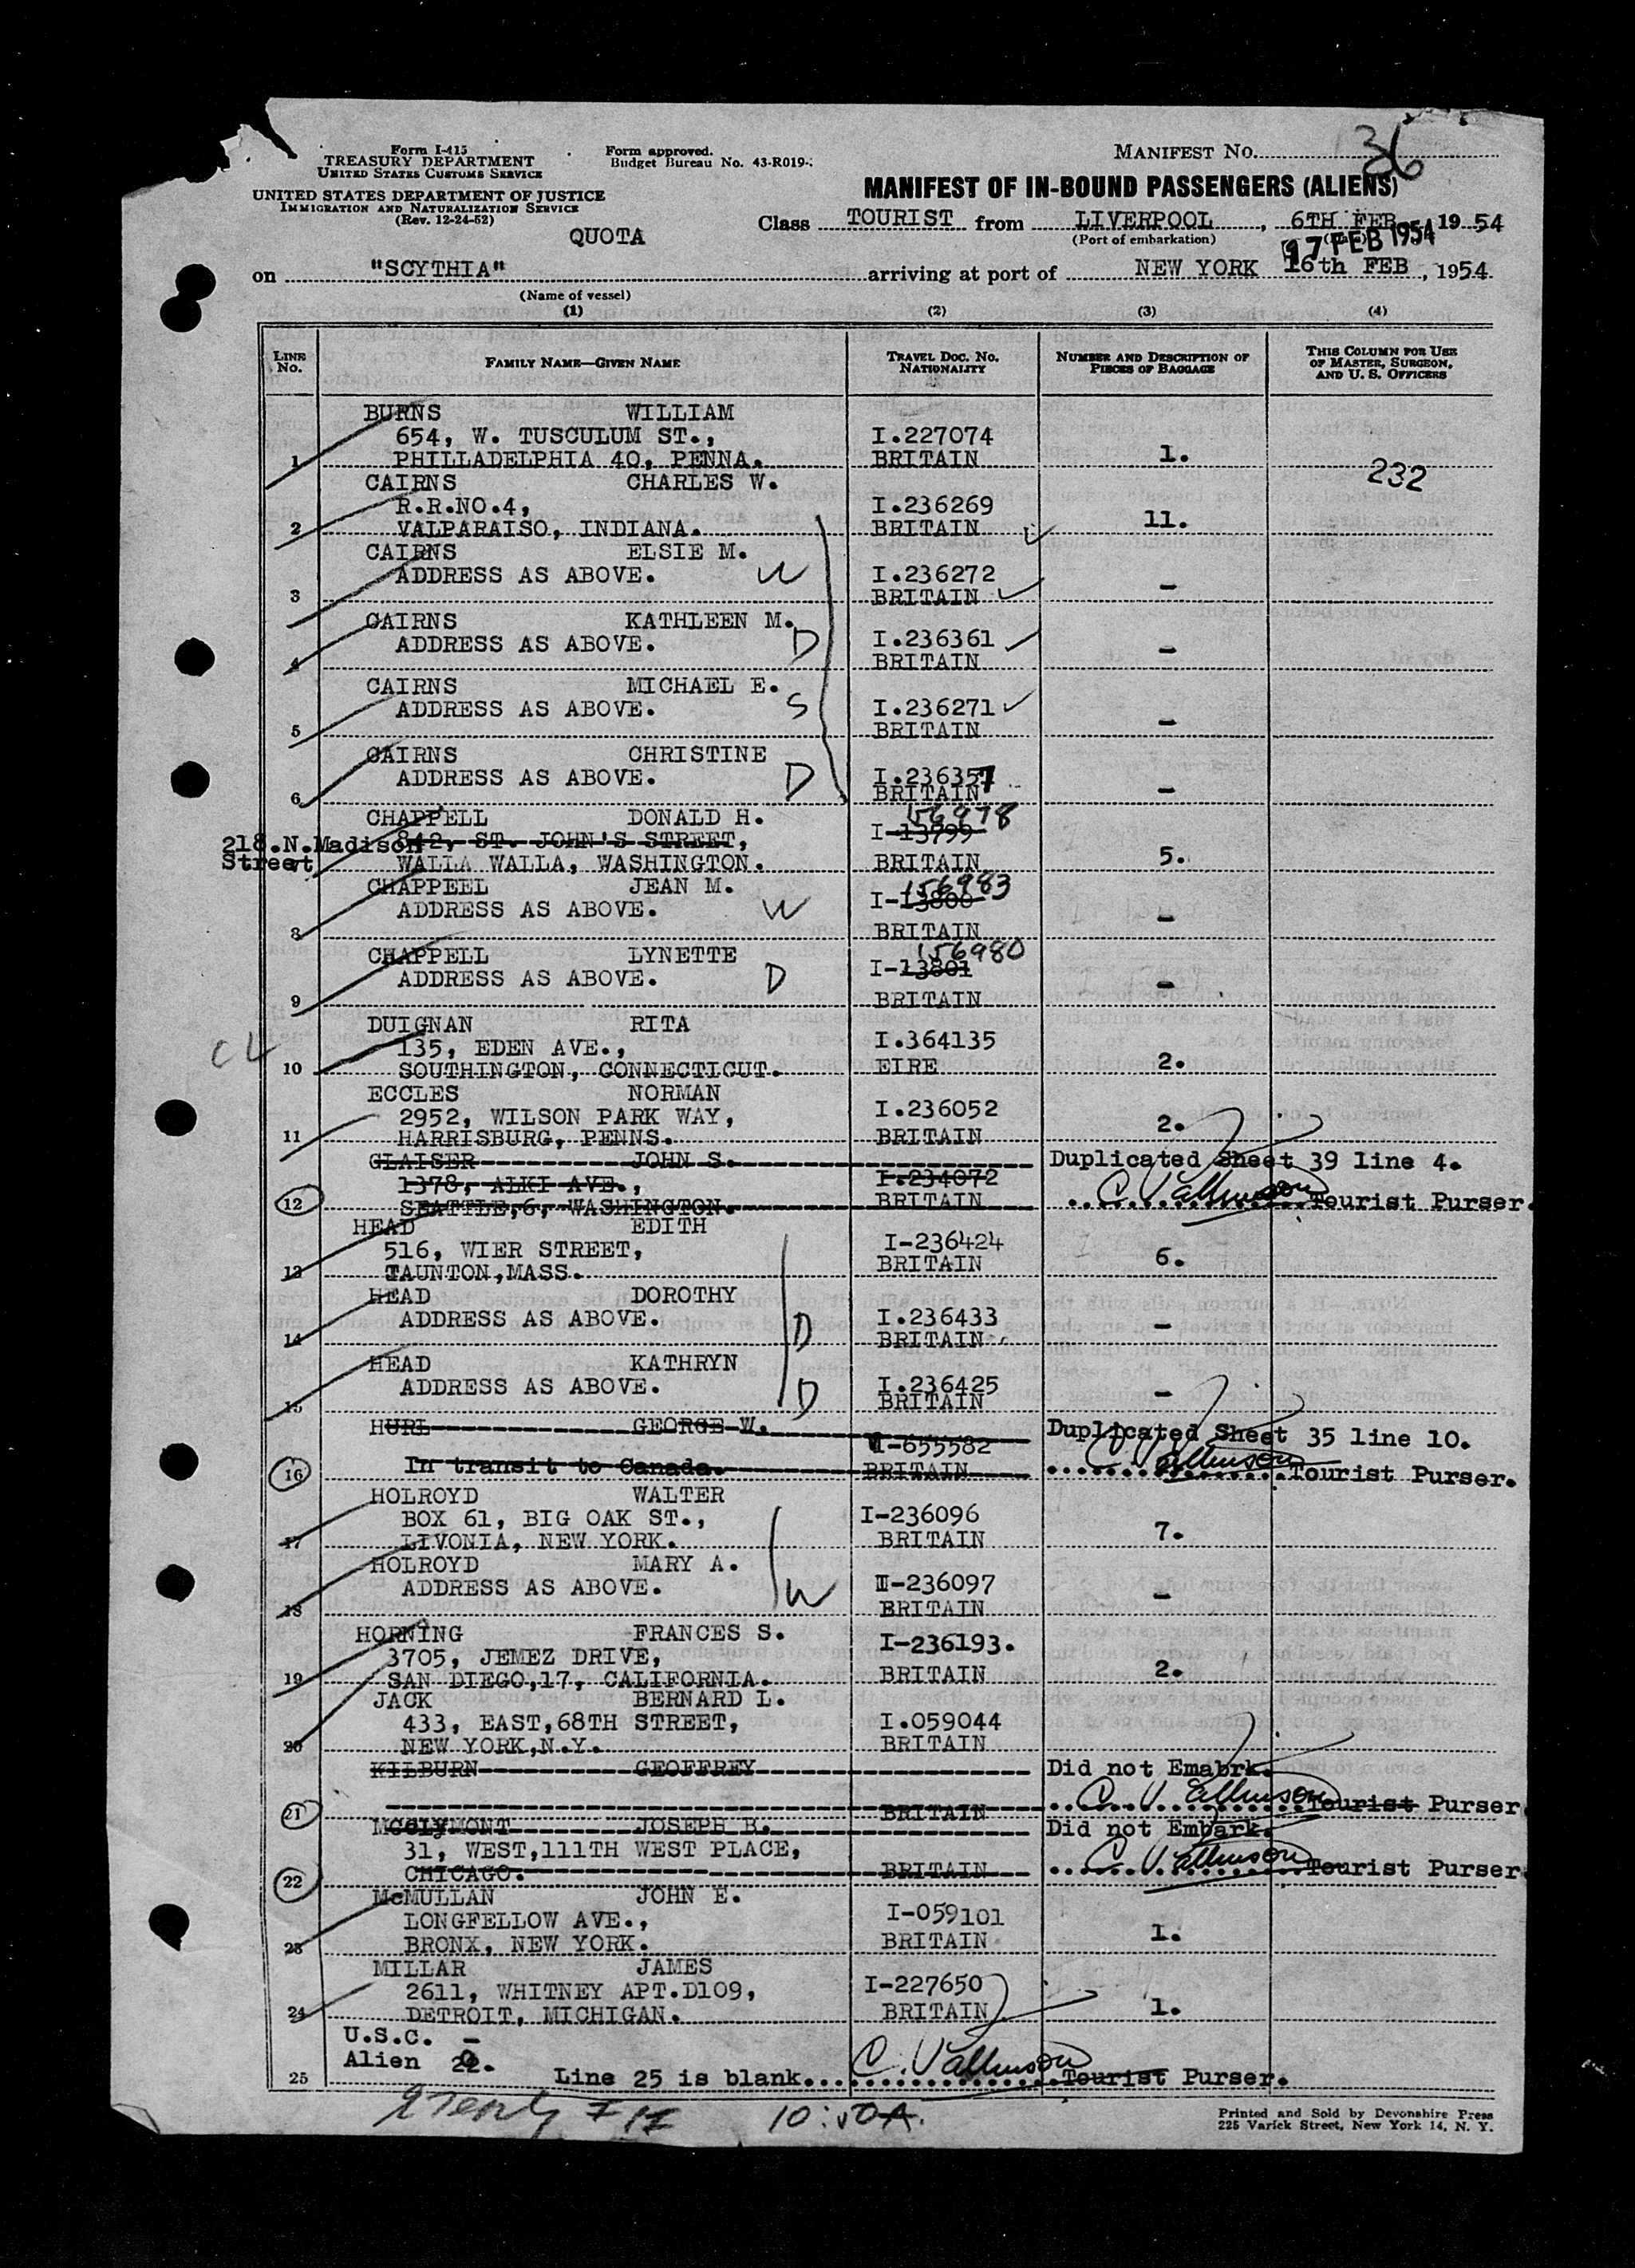 Form I-415
TREASURY DEPARTMENT
UNITED STATES CUSTOMS SERVICE
UNITED STATES DEPARTMENT OF JUSTICE
IMMIGRATION AND NATURALIZATION SERVICE
(Rev. 12-24-52)
Form approved.
Budget Bureau No. 43-R019-
MANIFEST No. 36
MANIFEST OF IN-BOUND PASSENGERS (ALIENS)
QUOTA
Class TOURIST from LIVERPOOL, 6TH FEB 1954
(Port of embarkation)
17 FEB 1954
on "SCYTHIA" arriving at port of NEW YORK 16th FEB, 1954
(Name of vessel)
(1) (2) (3) (4)
LINE No. FAMILY NAME—GIVEN NAME TRAVEL DOC. No. NATIONALITY NUMBER AND DESCRIPTION OF PIECES OF BAGGAGE THIS COLUMN FOR USE OF MASTER, SURGEON, AND U. S. OFFICERS
BURNS WILLIAM
654, W. TUSCULUM ST., I.227074
1 PHILLADELPHIA 40, PENNA. BRITAIN 1. 232
CAIRNS CHARLES W.
R.R.NO.4, I.236269
2 VALPARAISO, INDIANA. BRITAIN 11.
CAIRNS ELSIE M.
ADDRESS AS ABOVE. W I.236272
3 BRITAIN -
CAIRNS KATHLEEN M.
ADDRESS AS ABOVE. D I.236361
4 BRITAIN -
CAIRNS MICHAEL E.
ADDRESS AS ABOVE. S I.236271
5 BRITAIN -
CAIRNS CHRISTINE
ADDRESS AS ABOVE. D I.236357
6 BRITAIN -
CHAPPELL DONALD H. 156978
218.N.Madison 842, ST. JOHN'S STREET, I-13799
Street WALLA WALLA, WASHINGTON. BRITAIN 5.
CHAPPELL JEAN M. 156983
ADDRESS AS ABOVE. W I-13800
8 BRITAIN -
CHAPPELL LYNETTE 156980
ADDRESS AS ABOVE. D I-13801
9 BRITAIN -
DUIGNAN RITA
135, EDEN AVE., I.364135
10 SOUTHINGTON, CONNECTICUT. EIRE 2.
ECCLES NORMAN
2952, WILSON PARK WAY, I.236052
11 HARRISBURG, PENNS. BRITAIN 2.
GLAISER JOHN S. Duplicated Sheet 39 line 4.
1378, ALKI AVE., I.234072
12 SEATTLE,6, WASHINGTON. BRITAIN Tourist Purser.
HEAD EDITH
516, WIER STREET, I-236424
13 TAUNTON,MASS. BRITAIN 6.
HEAD DOROTHY
ADDRESS AS ABOVE. D I.236433
14 BRITAIN -
HEAD KATHRYN
ADDRESS AS ABOVE. D I.236425
15 BRITAIN -
HURL GEORGE W. Duplicated Sheet 35 line 10.
I-655582
16 In transit to Canada. BRITAIN Tourist Purser.
HOLROYD WALTER
BOX 61, BIG OAK ST., I-236096
17 LIVONIA, NEW YORK. BRITAIN 7.
HOLROYD MARY A.
ADDRESS AS ABOVE. W I-236097
18 BRITAIN -
HORNING FRANCES S.
3705, JEMEZ DRIVE, I-236193.
19 SAN DIEGO,17, CALIFORNIA. BRITAIN 2.
JACK BERNARD L.
433, EAST,68TH STREET, I.059044
20 NEW YORK,N.Y. BRITAIN
KILBURN GEOFFREY Did not Emabrk.
21 BRITAIN Tourist Purser
McCLYMONT JOSEPH R. Did not Embark.
31, WEST,111TH WEST PLACE,
22 CHICAGO. BRITAIN Tourist Purser
McMULLAN JOHN E.
LONGFELLOW AVE., I-059101
23 BRONX, NEW YORK. BRITAIN 1.
MILLAR JAMES
2611, WHITNEY APT.D109, I-227650
24 DETROIT, MICHIGAN. BRITAIN 1.
U.S.C. -
Alien
25 Line 25 is blank. Tourist Purser.
Printed and Sold by Devonshire Press
225 Varick Street, New York 14, N. Y.